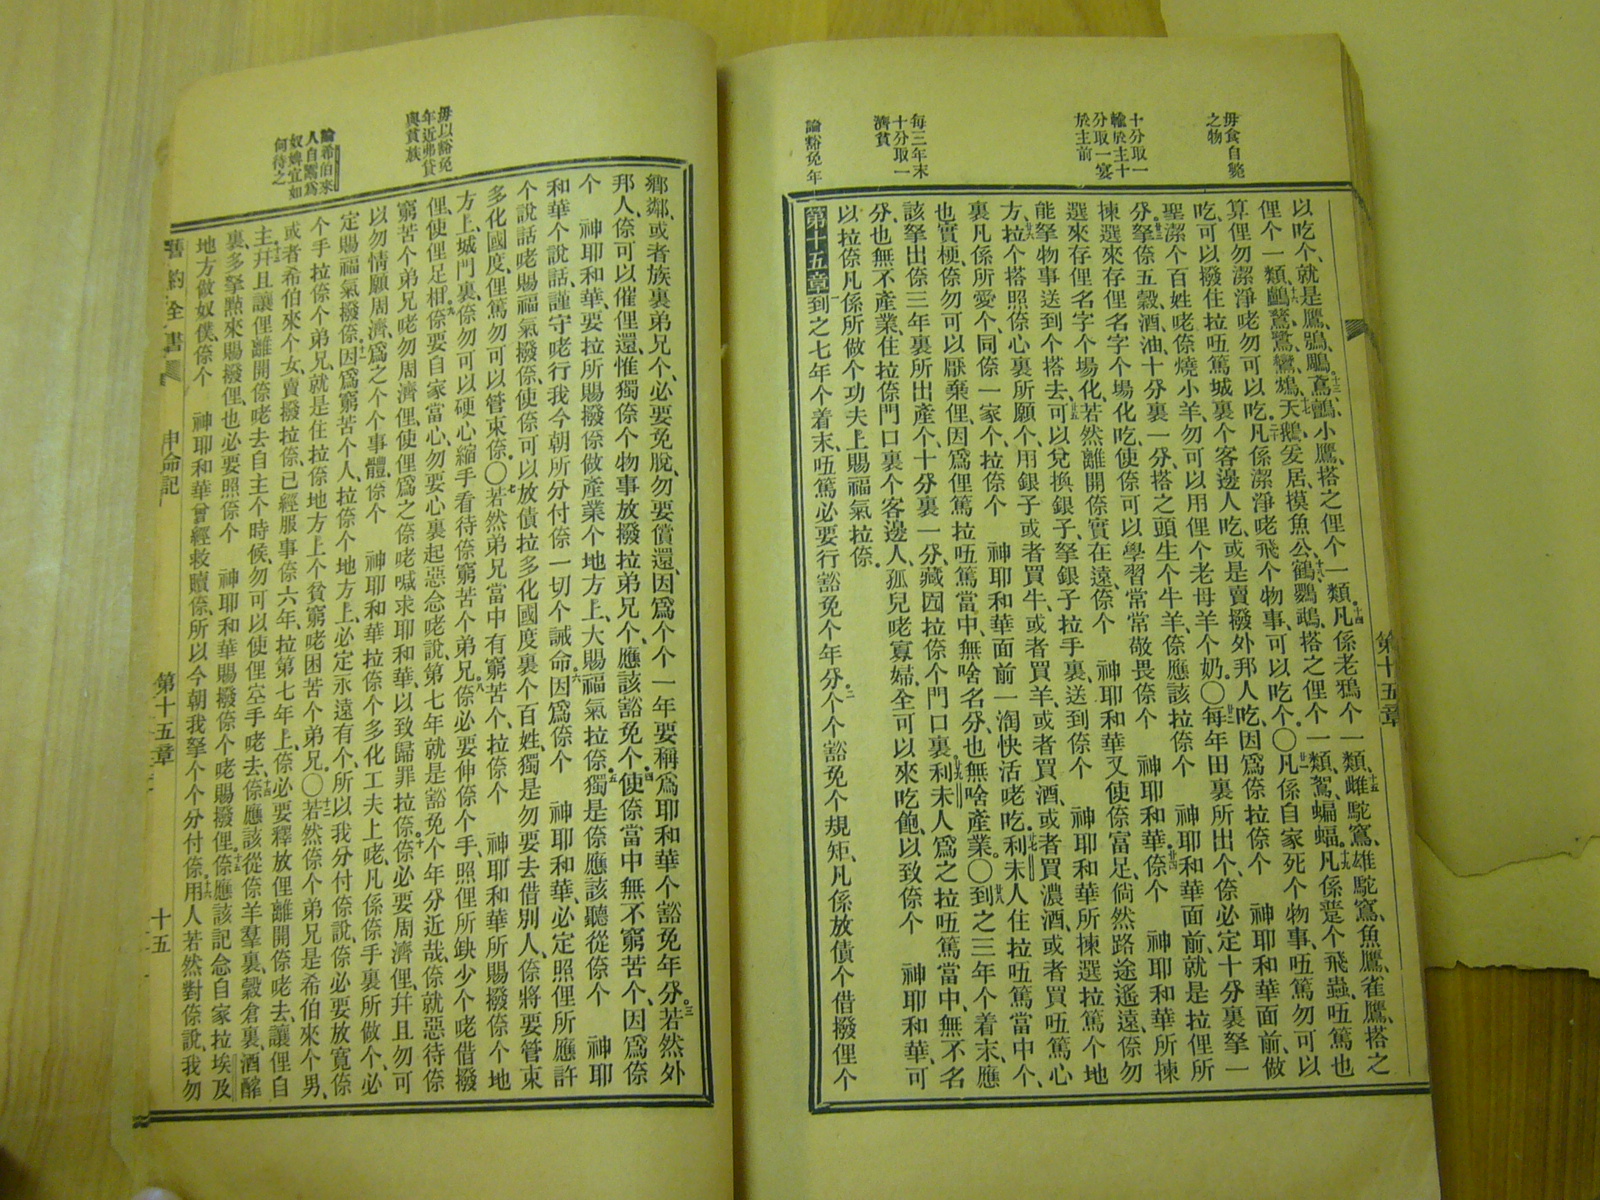 毋食自斃
之物
十分取一
輸於主十
分取一宴
於主前
每三年末
十分取一
濟貧
論豁免年
以吃个、就是鷹、鴉、鵰、鳶、鸇、小鷹、搭之俚个一類、凡係老鴉个一類、雌駝窩、雄駝窩、魚鷹、雀鷹、搭之
俚个一類、天鵝、魚公、鶴、鸚鵡、搭之俚个一類、蝙蝠、凡係个飛蟲、㕶篤也
算俚勿潔淨咾勿可以吃、凡係潔淨咾飛个物事、可以吃个、〇凡係自家死个物事、㕶篤勿可以
吃、可以撥住拉㕶篤城裏个客邊人吃、或是賣撥外邦人吃、因爲倷拉倷个　神耶和華面前、做
聖潔个百姓咾、倷燒小羊、勿可以用俚个老母羊个奶、〇每年田裏所出个、倷必定十分裏拏一
分、拏倷五穀、酒、油、十分裏一分、搭之頭生个牛羊、倷應該拉倷个　神耶和華面前、就是拉俚所
揀選來存俚名字个場化吃、使倷可以學習常常敬畏倷个　神耶和華、倷个　神耶和華所揀
選來存俚名字个場化、若然離開倷實在遠、倷个　神耶和華又使倷富足、倘然路途遙遠、倷勿
能拏物事送到个搭去、可以兌換銀子、拏銀子拉手裏、送到倷个　神耶和華所揀選拉篤个地
方、拉个搭照倷心裏所願个、用銀子或者買牛、或者買羊、或者買酒、或者買濃酒、或者買㕶篤心
裏凡係所愛个、同倷一家个、拉倷个　神耶和華面前一淘快活咾吃、利未人住拉㕶篤當中个、
也實梗、倷勿可以厭棄俚、因爲俚篤拉㕶篤當中、無啥名分、也無啥產業、〇到之三年个着末、應
該拏出倷三年裏所出產个十分裏一分、藏囥拉倷个門口裏、利未人爲之拉㕶篤當中、無不名
分、也無不產業、住拉倷門口裏个客邊人、孤兒咾寡婦、全可以來吃飽、以致倷个　神耶和華、可
以拉倷凡係所做个功夫上、賜福氣拉倷、
第十五章到之七年个着末、㕶篤必要行豁免个年分、个个豁免个規矩、凡係放債个借撥俚个
第十五章
毋以豁免
年近弗貸
與貧族
論希伯來
人自鬻爲
奴婢宜如
何待之
鄉鄰、或者族裏弟兄个、必要免脫、勿要償還、因爲个个一年、要稱爲耶和華个豁免年分、若然外
邦人、倷可以催俚還、惟獨倷个物事放撥拉弟兄个、應該豁免个、使倷當中無不窮苦个、因爲倷
个　神耶和華、要拉所賜撥倷做產業个地方上、大賜福氣拉倷、獨是倷應該聽從倷个　神耶
和華个說話、謹守咾行我今朝所分付倷一切个誡命、因爲倷个　神耶和華、必定照俚所應許
个說話咾賜福氣撥倷、使倷可以放債拉多化國度裏个百姓、獨是勿要去借別人、倷將要管束
多化國度、俚篤勿可以管束倷、〇若然弟兄當中有窮苦个、拉倷个　神耶和華所賜撥倷个地
方上、城門裏、倷勿可以硬心縮手看待倷窮苦个弟兄、倷必要伸倷个手、照俚所缺少个咾借撥
俚、使俚足用、倷要自家當心、勿要心裏起惡念咾說、第七年就是豁免个年分近哉、倷就惡待倷
窮苦个弟兄咾勿周濟俚、使俚爲之倷咾喊求耶和華、以致歸罪拉倷、倷必要周濟俚、幷且勿可
以勿情願周濟、爲之个个事體、倷个　神耶和華拉倷个多化工夫上咾、凡係倷手裏所做个、必
定賜福氣撥倷、因爲窮苦个人、拉倷个地方上、必定永遠有个、所以我分付倷說、倷必要放寬倷
个手、拉倷个弟兄、就是住拉倷地方上个貧窮咾困苦个弟兄、〇若然倷个弟兄、是希伯來个男、
或者希伯來个女、賣撥拉倷、已經服事倷六年、拉第七年上、倷必要釋放俚離開倷咾去、讓俚自
主、幷且讓俚離開倷咾去自主个時候、勿可以使俚空手咾去、倷應該從倷羊羣裏、穀倉裏、酒醡
裏、多拏點來賜撥俚、也必要照倷个　神耶和華賜撥倷个咾賜撥俚、倷應該記念自家拉埃及
地方做奴僕、倷个　神耶和華曾經救贖倷、所以今朝我拏个个分付倷、用人若然對倷說、我勿
舊約全書　申命記　第十五章　十五